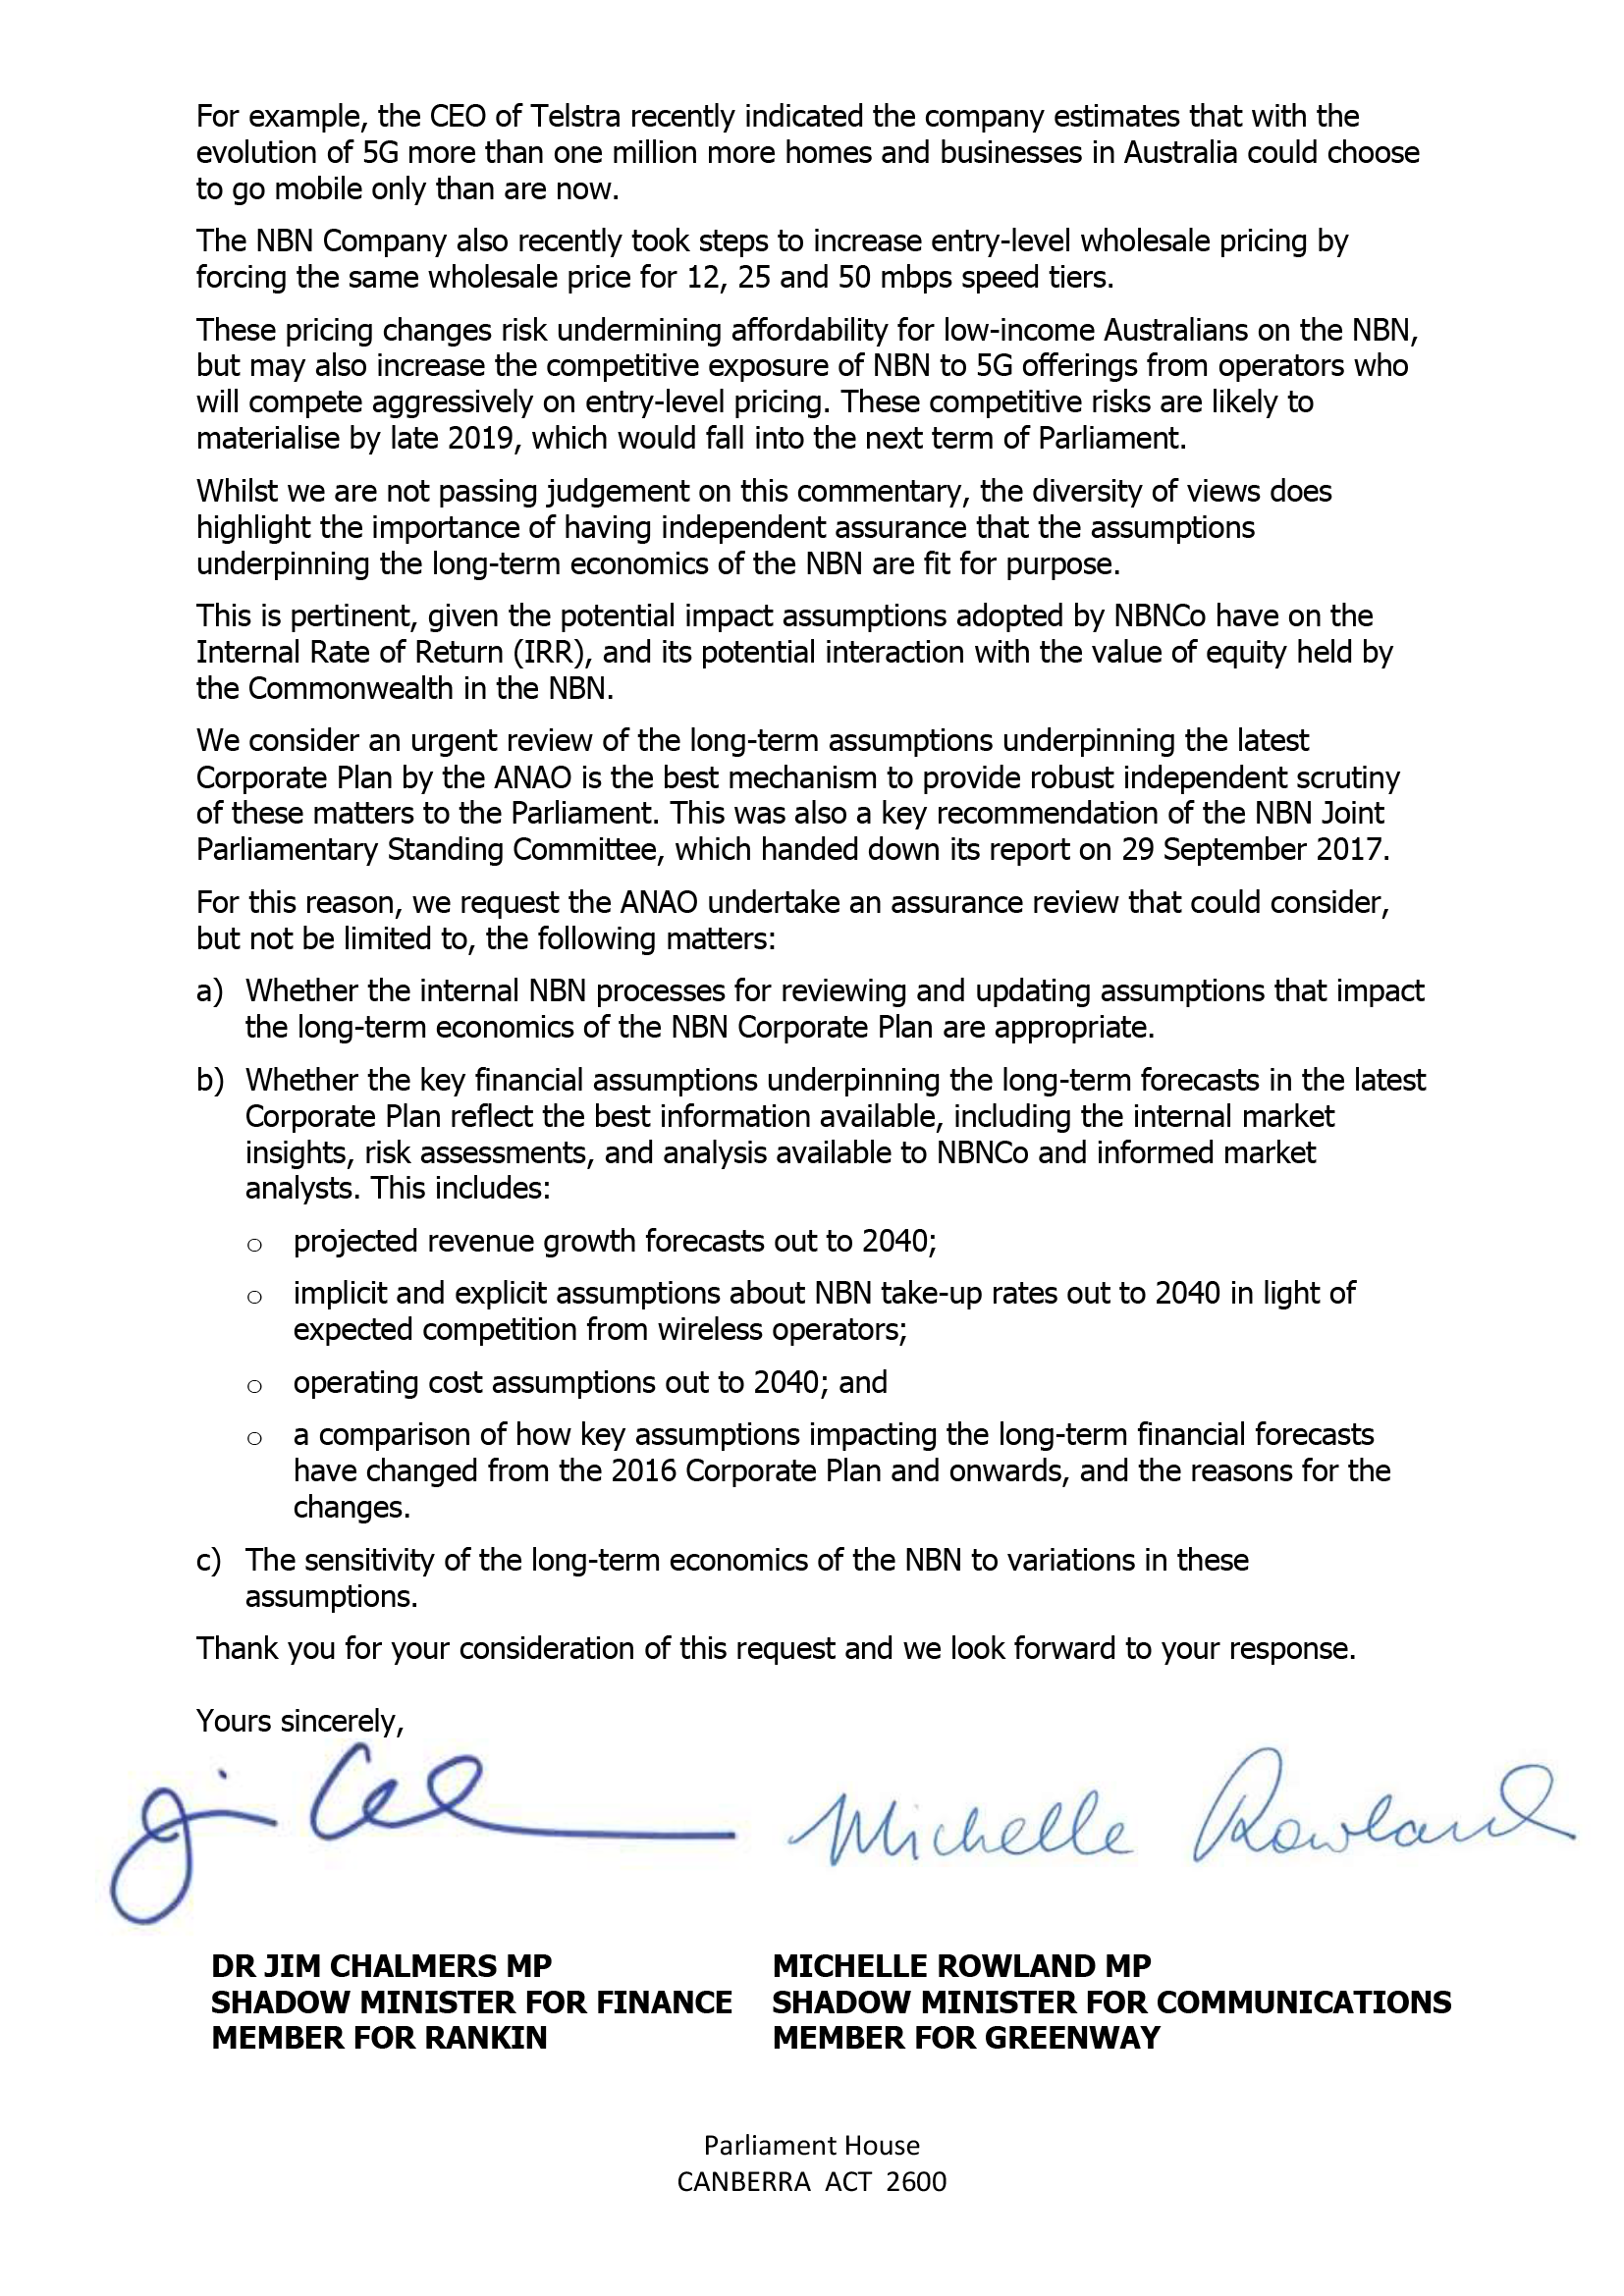 For example, the CEO of Telstra recently indicated the company estimates that with the
evolution of 5G more than one million more homes and businesses in Australia could choose
to go mobile only than are now.
The NBN Company also recently took steps to increase entry-level wholesale pricing by
forcing the same wholesale price for 12, 25 and 50 mbps speed tiers.
These pricing changes risk undermining affordability for low-income Australians on the NBN,
but may also increase the competitive exposure of NBN to 5G offerings from operators who
will compete aggressively on entry-level pricing. These competitive risks are likely to
materialise by late 2019, which would fall into the next term of Parliament.
Whilst we are not passing judgement on this commentary, the diversity of views does
highlight the importance of having independent assurance that the assumptions
underpinning the long-term economics of the NBN are fit for purpose.
This is pertinent, given the potential impact assumptions adopted by NBNCo have on the
Internal Rate of Return (IRR), and its potential interaction with the value of equity held by
the Commonwealth in the NBN.
We consider an urgent review of the long-term assumptions underpinning the latest
Corporate Plan by the ANAO is the best mechanism to provide robust independent scrutiny
of these matters to the Parliament. This was also a key recommendation of the NBN Joint
Parliamentary Standing Committee, which handed down its report on 29 September 2017.
For this reason, we request the ANAO undertake an assurance review that could consider,
but not be limited to, the following matters:
a) Whether the internal NBN processes for reviewing and updating assumptions that impact
the long-term economics of the NBN Corporate Plan are appropriate.
b) Whether the key financial assumptions underpinning the long-term forecasts in the latest
Corporate Plan reflect the best information available, including the internal market
insights, risk assessments, and analysis available to NBNCo and informed market
analysts. This includes:
o projected revenue growth forecasts out to 2040;
o implicit and explicit assumptions about NBN take-up rates out to 2040 in light of
expected competition from wireless operators;
o operating cost assumptions out to 2040; and
o a comparison of how key assumptions impacting the long-term financial forecasts
have changed from the 2016 Corporate Plan and onwards, and the reasons for the
changes.
c) The sensitivity of the long-term economics of the NBN to variations in these
assumptions.
Thank you for your consideration of this request and we look forward to your response.
Yours sincerely,
Michelle Rowland
DR JIM CHALMERS MP MICHELLE ROWLAND MP
SHADOW MINISTER FOR FINANCE SHADOW MINISTER FOR COMMUNICATIONS
MEMBER FOR RANKIN MEMBER FOR GREENWAY
Parliament House
CANBERRA ACT 2600